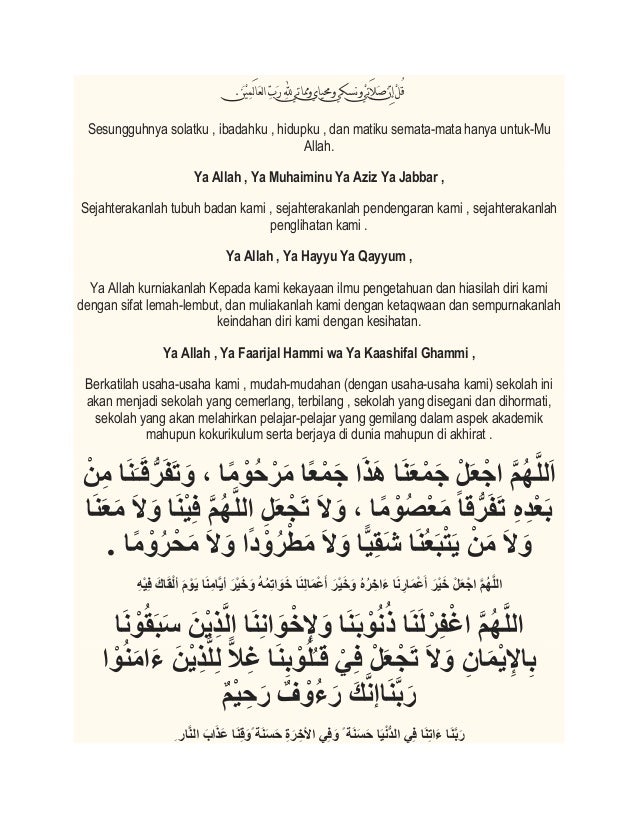 قُلْ إِنَّ صَلَاتِي وَنُسُكِي وَمَحْيَايَ وَمَمَاتِي لِلَّهِ رَبِّ الْعَالَمِينَ .
Sesungguhnya solatku , ibadahku , hidupku , dan matiku semata-mata hanya untuk-Mu
Allah.
Ya Allah , Ya Muhaiminu Ya Aziz Ya Jabbar ,
Sejahterakanlah tubuh badan kami , sejahterakanlah pendengaran kami , sejahterakanlah
penglihatan kami .
Ya Allah , Ya Hayyu Ya Qayyum ,
Ya Allah kurniakanlah Kepada kami kekayaan ilmu pengetahuan dan hiasilah diri kami
dengan sifat lemah-lembut, dan muliakanlah kami dengan ketaqwaan dan sempurnakanlah
keindahan diri kami dengan kesihatan.
Ya Allah , Ya Faarijal Hammi wa Ya Kaashifal Ghammi ,
Berkatilah usaha-usaha kami , mudah-mudahan (dengan usaha-usaha kami) sekolah ini
akan menjadi sekolah yang cemerlang, terbilang , sekolah yang disegani dan dihormati,
sekolah yang akan melahirkan pelajar-pelajar yang gemilang dalam aspek akademik
mahupun kokurikulum serta berjaya di dunia mahupun di akhirat .
اَللَّهُمَّ اجْعَلْ جَمْعَنَا هَذَا جَمْعًا مَرْحُوْمًا ، وَتَفَرُّقَنَا مِنْ
بَعْدِهِ تَفَرُّقاً مَعْصُوْمًا ، وَلاَ تَجْعَلِ اللَّهُمَّ فِيْنَا وَلاَ مَعَنَا
وَلاَ مَنْ يَتْبَعُنَا شَقِيًّا وَلاَ مَطْرُوْدًا وَلاَ مَحْرُوْمًا .
اللَّهُمَّ اجْعَلْ خَيْرَ أَعْمَارِنَا ءَاخِرُهُ وَخَيْرَ أَعْمَالِنَا خَوَاتِمُهُ وَخَيْرَ أَيَّامِنَا يَوْمَ أَلْقَاكَ فِيْهِ
اللَّهُمَّ اغْفِرْلَنَا ذُنُوْبَنَا وَلإِخْوَانِنَا الَّذِيْنَ سَبَقُوْنَا
بِالإِيْمَانِ وَلاَ تَجْعَلْ فِيْ قُلُوْبِنَا غِلاًّ لِلَّذِيْنَ ءَامَنُوْا
رَبَّنَاإِنَّكَ رَءُوْفٌ رَحِيْمٌ
رَبَّنَا ءَاتِنَا فِي الدُّنْيَا حَسَنَةً وَفِي الأَخِرَةِ حَسَنَةً وَقِنَا عَذَابَ النَّارِ.